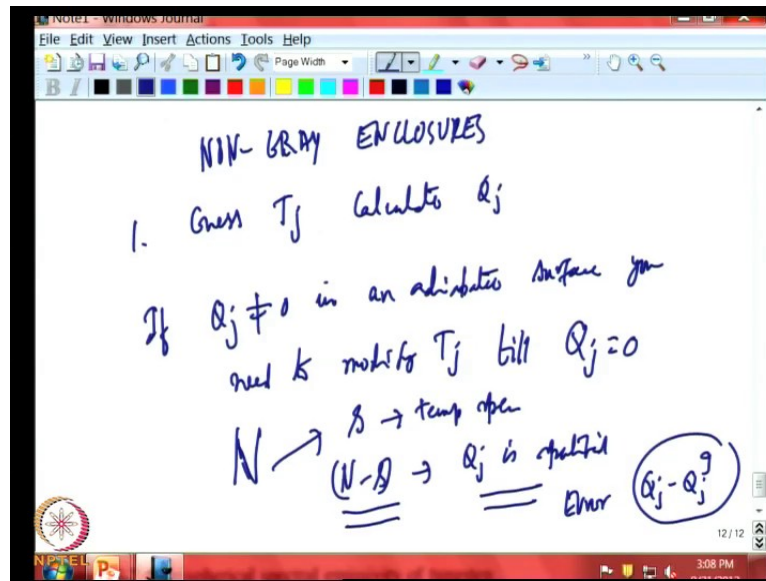 Note1 - Windows Journal
File Edit View Insert Actions Tools Help
Page Width
B I
NON-GRAY ENCLOSURES
1. Guess Tj Calculate Qj
If Qj ≠ 0 in an adiabatic surface you
need to modify Tj till Qj = 0
N → s → temp spec
(N-s) → Qj is specified
Error Qj - Qj^g
12 / 12
NPTEL
3:08 PM